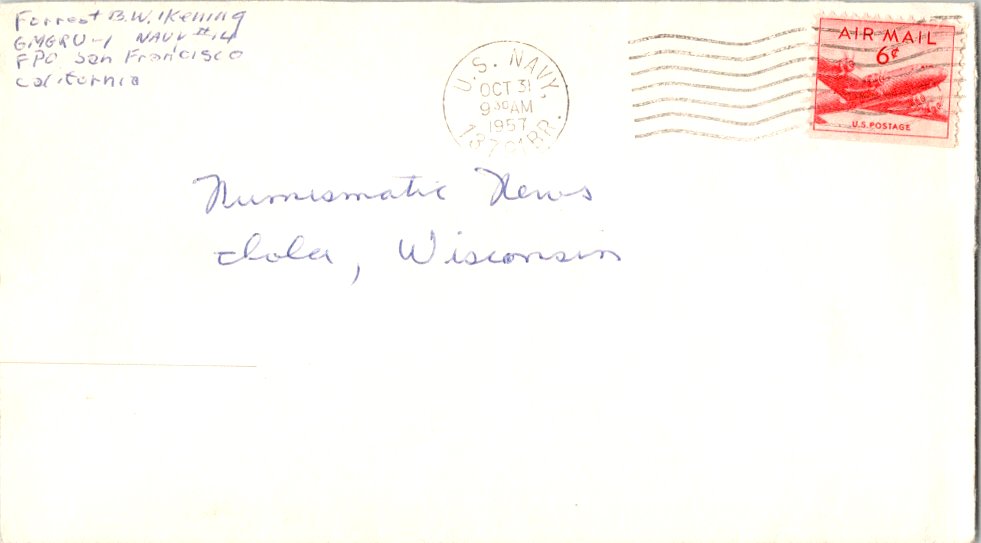 Forrest B.W. Ikening
GMGRU-1 NAVY #14
FPO San Francisco
California
U.S. NAVY,
OCT 31
9 30 AM
1957
BR.
AIR MAIL
6¢
U.S. POSTAGE
Numismatic News
Iola, Wisconsin